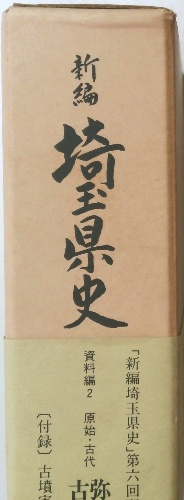 新編
埼玉県史
「新編埼玉県史」第六回
資料編2 原始・古代
弥
古
〔付録〕古墳